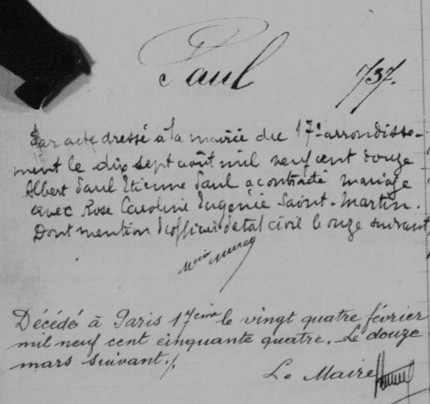 Paul
737.
Par acte dressé à la mairie du 17e arrondisse-
ment le dix sept août mil neuf cent douze
Albert Paul Etienne Paul a contracté mariage
avec Rose Caroline Eugénie Saint-Martin.
Dont mention l'officier d'état civil le onze suivant
Décédé à Paris 17eme le vingt quatre février
mil neuf cent cinquante quatre. Le douze
mars suivant./.
Le Maire